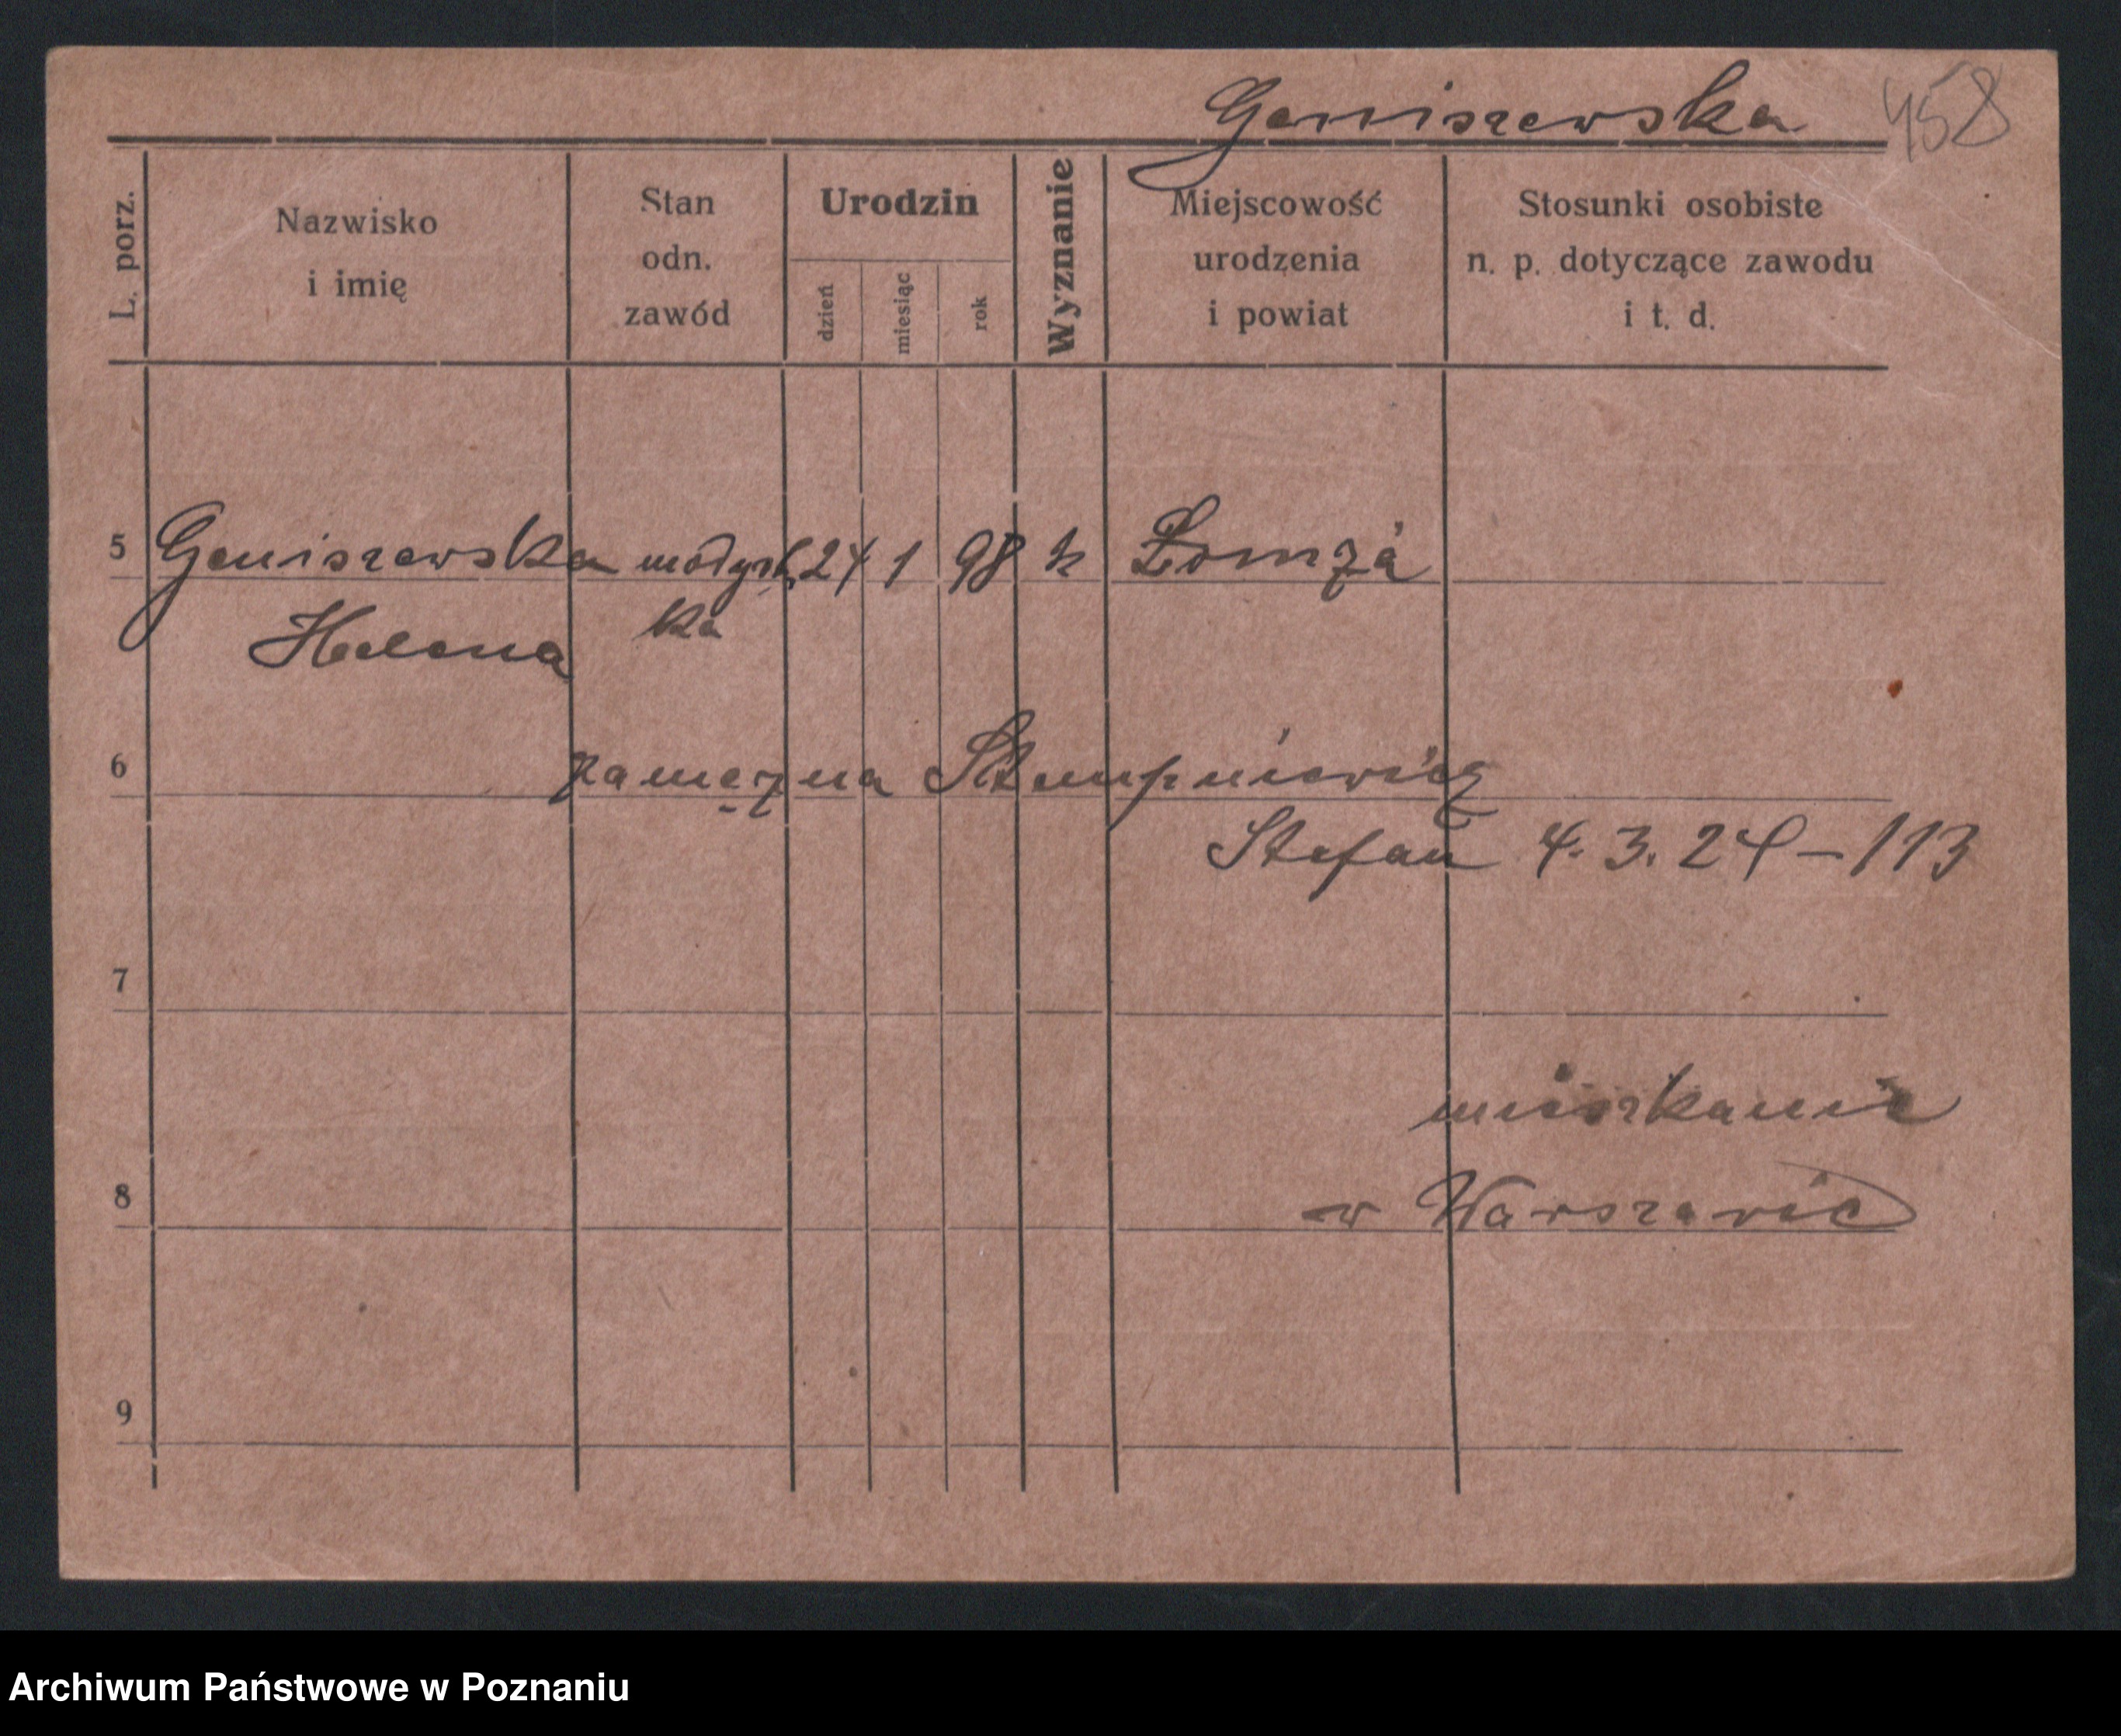 Geniszewska 458
L. porz.
Nazwisko
i imię
Stan
odn.
zawód
Urodzin
dzień
miesiąc
rok
Wyznanie
Miejscowość
urodzenia
i powiat
Stosunki osobiste
n. p. dotyczące zawodu
i t. d.
5 Geniszewska modyst 24 1 98 k Łomża
Helena ka
6 zamężna Stempniewicz
Stefan 4.3.24 – 113
7
mieszkanie
8 w Warszawie
9
Archiwum Państwowe w Poznaniu